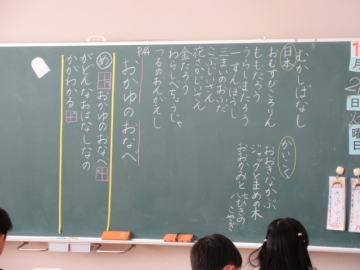 むかしばなし
日本
おむすびころりん
ももたろう
うらしまたろう
一すんぼうし
三まいのおふだ
こぶじいさん
花さかじいさん
金たろう
わらしべちょうじゃ
つるのおんがえし
がいこく
おおきなかぶ
ジャックとまめの木
おおかみと七ひきの
こやぎ
P.44
おかゆのおなべ
め おかゆのおなべ
がどんなおはなしなの
かがわかる
月
日
火
曜
日